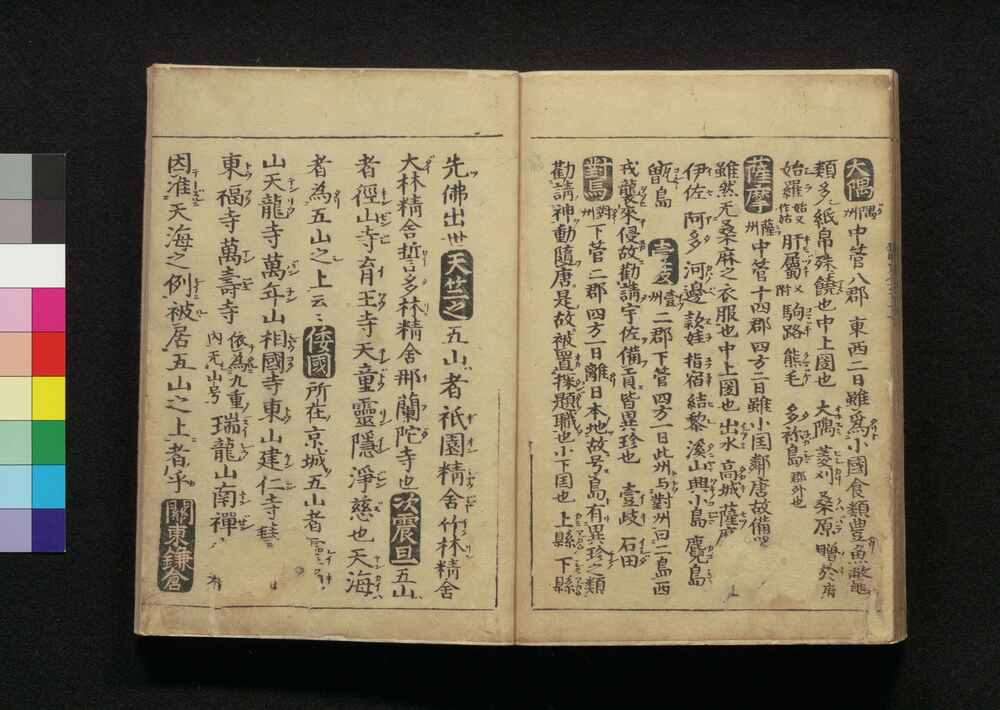 大隅 隅州 中管八郡 東西二日雖爲小國食類豊魚
類多紙帛殊饒也中上圀也 大隅 菱刈 桑原 贈於
始羅 始又作姶 肝屬 附 駒路 熊毛 多祢島 郡外也
薩摩 薩州 中管十四郡四方二日雖小囯鄰唐故備
雖然无桑麻之衣服也中上圀也 出水 高城 薩摩
伊佐 阿多 河邊 欵娃 指宿 結黎 溪山 興小島 麑島
甑島 壹岐 壹州 二郡下管四方一日此州与對州曰二島西
戎襲來侵故勸請宇佐備貢皆異珍也 壹岐 石田
對馬 對州 下管二郡四方一日離日本地故号島有異珍之類
勸請神動隨唐是故被置探題職也小下囯也 上縣 下縣
先佛出世 天竺之 五山者祇園精舍竹林精舍
大林精舍誓多林精舍那蘭陀寺也 次震旦 五山
者徑山寺育王寺天童靈隱淨慈也天海
者為五山之上云〻 倭國 所在京城五山者靈
山天龍寺萬年山相國寺東山建仁寺
東福寺萬壽寺 依為九重内无山号 瑞龍山南禪
因准天海之例被居五山之上者乎 關東鎌倉